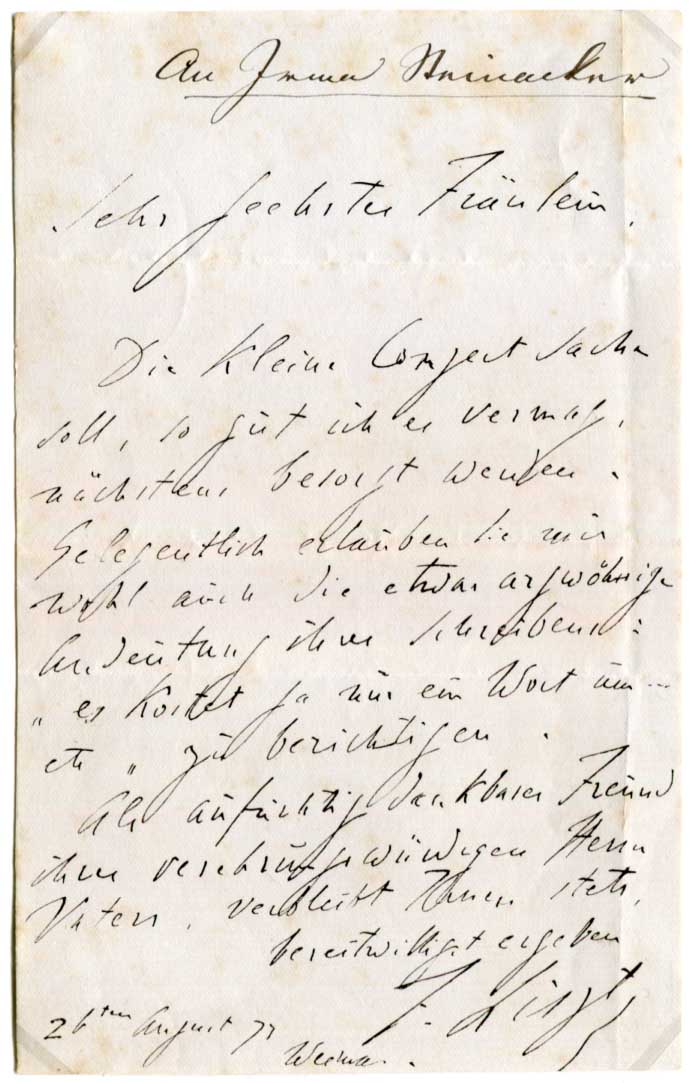 An Irma Steinacker
Sehr geehrtes Fräulein,
Die kleine Conzert Sache
soll, so gut ich es vermag,
nächstens besorgt werden.
Gelegentlich erlauben Sie mir
wohl auch die etwas argwöhnige
Andeutung ihres Schreibens:
"es kostet ja nur ein Wort um...
etc" zu berichtigen.
Als aufrichtig dankbarer Freund
ihres verehrungswürdigen Herrn
Vaters, verbleibt Ihnen stets,
bereitwilligst ergeben
F. Liszt
26ten August 77
Weimar.